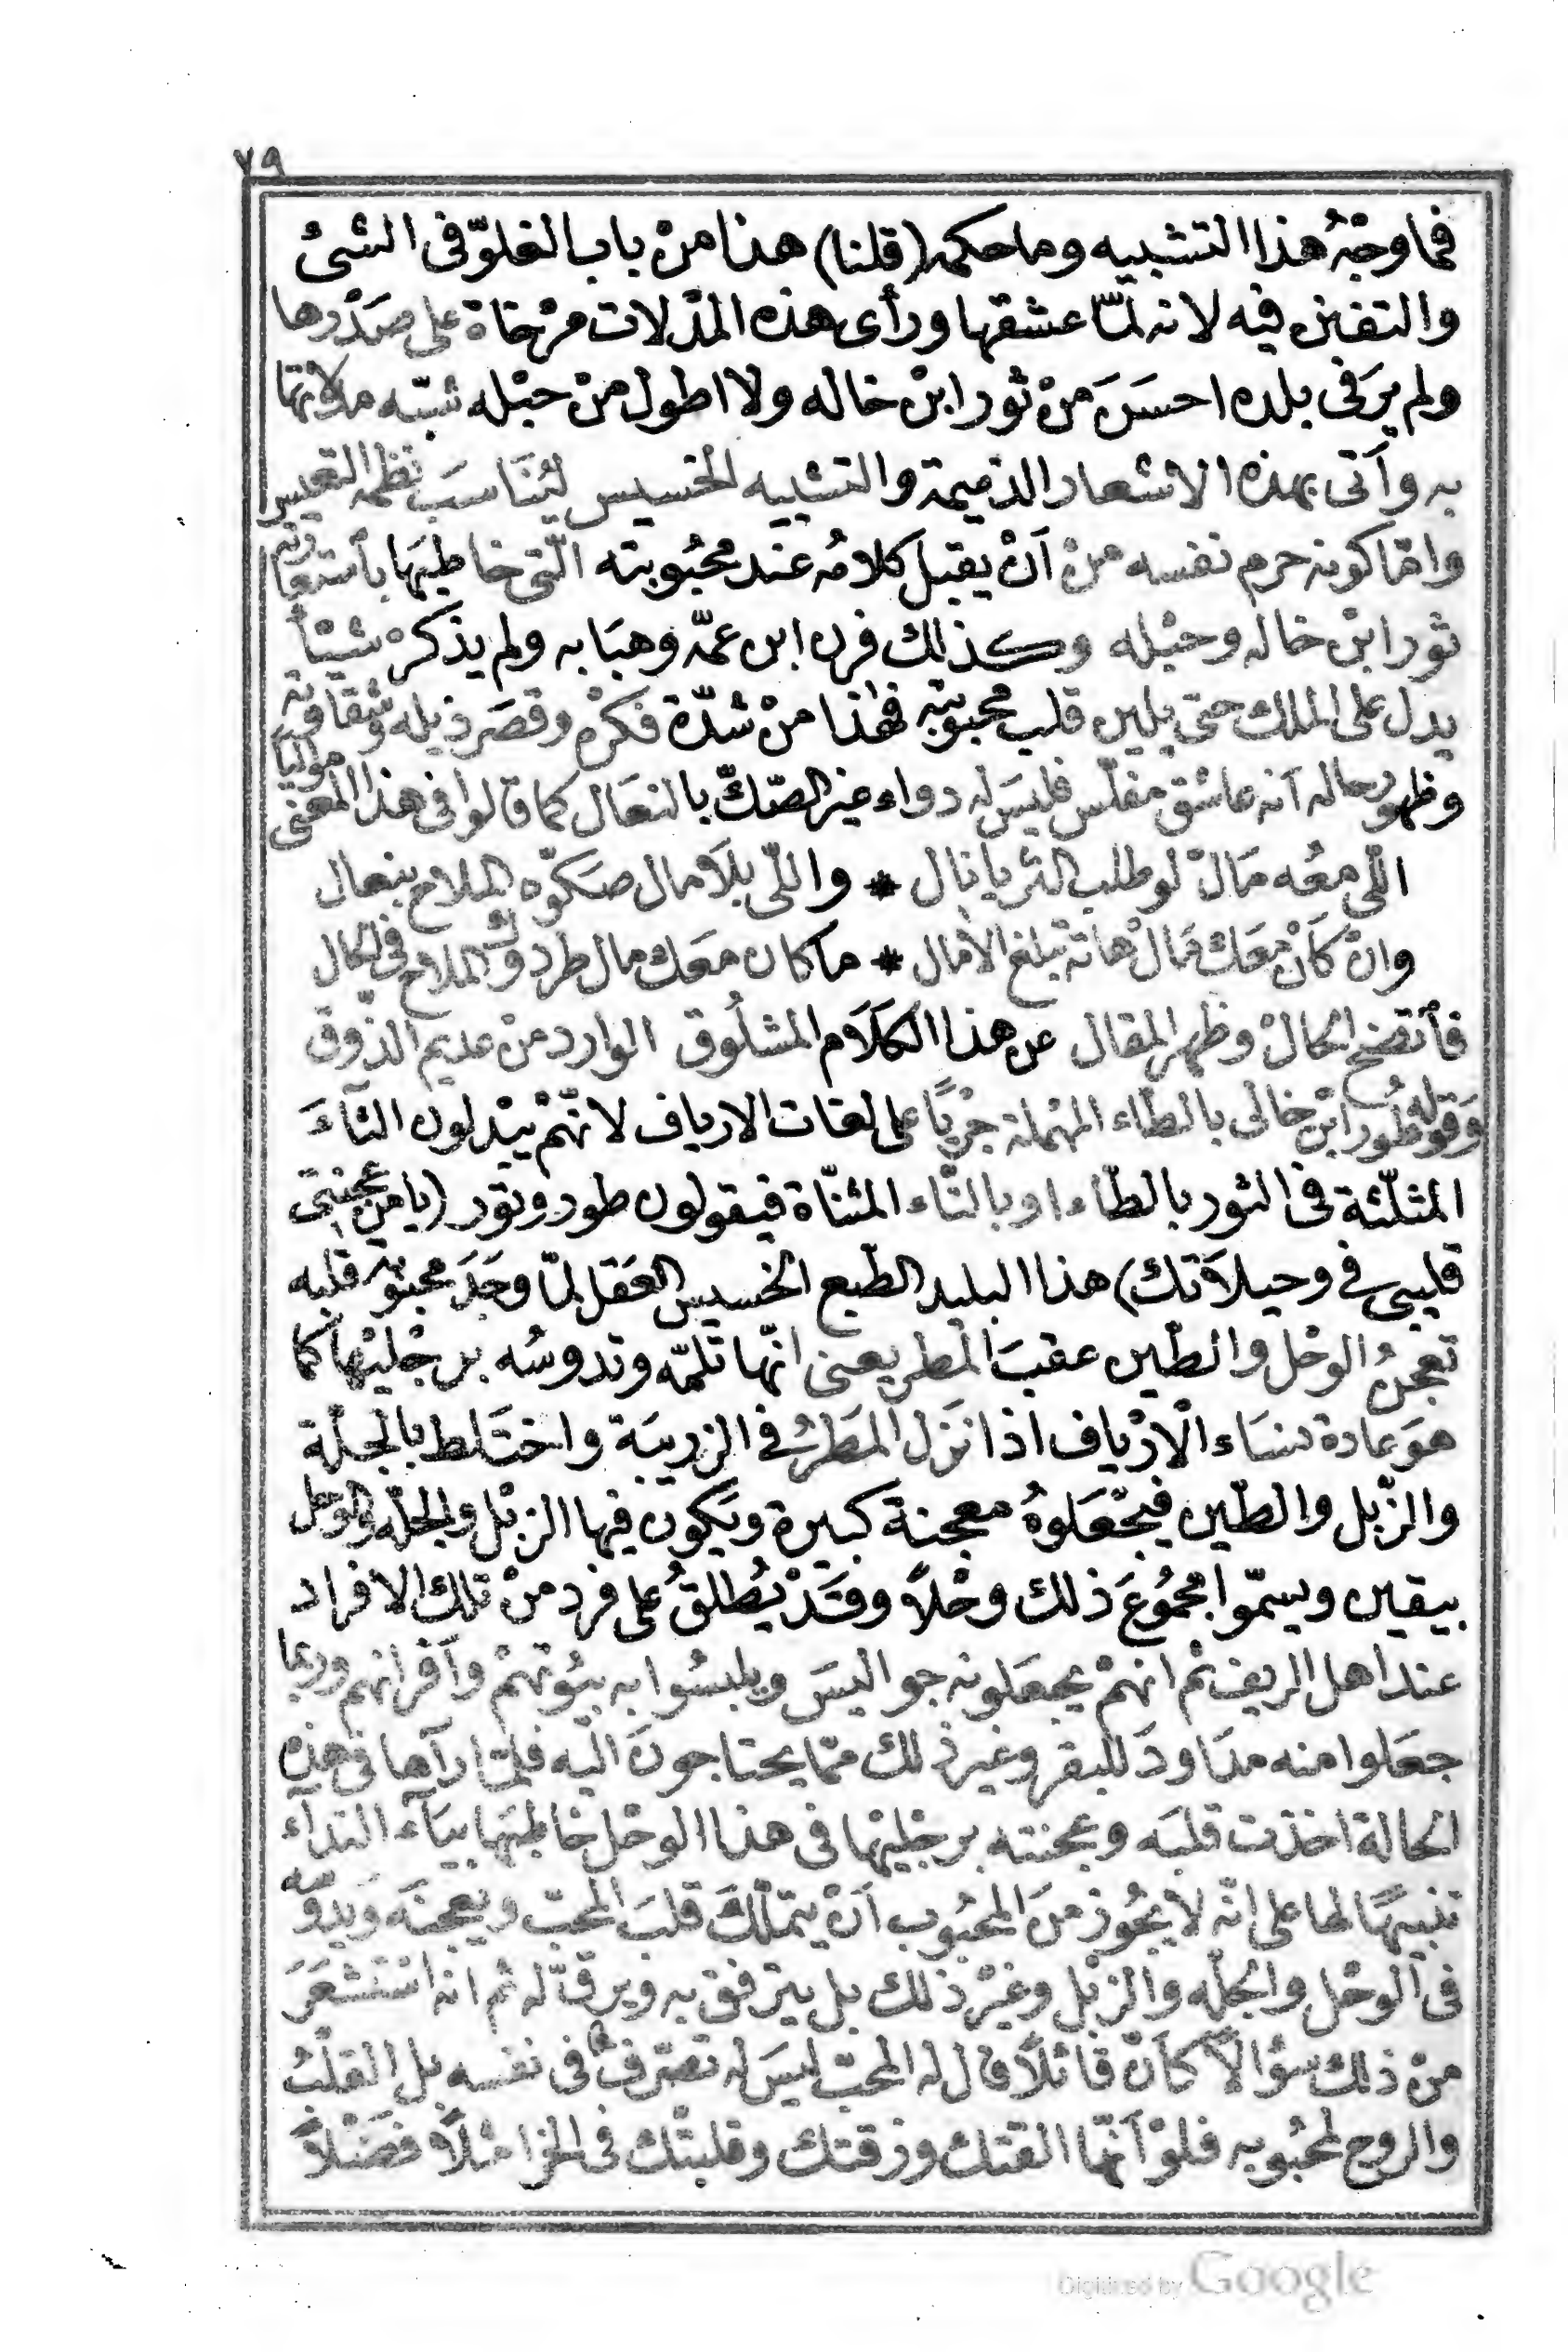 ٧٩
فما وجْهُ هذا التشبيه وما حكمه (قلنا) هذا منْ باب الغلوّ فى الشئ
والتفنن فيه لانه لمّا عشقها ورأى هذه المدْلات مرْخاة على صَدْرها
ولم يرَ فى بلده احسَنَ منْ ثور ابنْ خاله ولا اطول منْ حبْله شبّه مدلاتها
به وآتى بهذه الاشعار الذميمة والتشبيه الخسيس ليُنَاسبَ نظمه التعيس
وامّا كونه حرم نفسه منْ اَنْ يقبل كلامُه عند محبُوبته الّتى خاطبَها بأستعارته
ثور ابنْ خاله وحبْله وكذلك فرن ابن عمّه وهبَابه ولم يذكرْ شيْأ
يدل على الملك حتى يلين قلب محبوبته فهٰذا منْ شدّة فكرْه وقصَر ذيله وشقاوته
وظهور حاله آنه عاشق مفلّس فليسَ له دواء غير الصّكّ بالنعَال كما قالوا فى هذا المعنى مواليا
اللّى معُه مَالْ لو طلب الثريا نال * واللّى بلَا مال صَكّوه الملاح بنعال
وانْ كَانْ مَعَكْ مَالْ هاته تبلغ الاٰمال * ما كان معَك مال طردوك الملاح فى الحال
فأتضح الحالْ وظهر المقال عن هذا الكَلَام المشلُوق الوارد منْ عديم الذّوق
وَقولهُ طور ابنْ خالى بالطّاء المهْملة جرْيًا على لغات الارياف لانّهمْ يبْدلون الثآءَ
المثلّثة فى الثور بالطّاء او بالتّاء المثنّاة فيقولون طور وتور (يا من عجنتى
قليبى فى وحيلاَتك) هذا البليد الطّبع الخسيس العَقل لمّا وجَدَ محبوبَة قلبه
تعجنُ الوحْل والطّين عقبَ المطر يعنى انّها تلمّه وتدوسُه برجْليْها كما
هوَ عادة نسَاء الْارْياف اذا نَزل المَطَرُ فى الزريبَة واختَلط بالجلّة
والزّبل والطّين فيجْعَلوهُ معجنة كبيرة ويَكون فيها الزبْل والجلّه والوحل
بيقين ويسمّوا مجمُوعَ ذلك وحْلاً وقَدْ يُطلقُ على فردٍ منْ تلك الافراد
عند اهل الريف ثم انهمْ يجعَلونه جواليسَ ويلبسُوا به بيُوتهمْ وآفرانهم وربما
جعَلوا منه مدَاودَ للبقر وغير ذلك ممّا يحتاجونَ الَيه فلمّا رآها فى هذه
الحالة اخذت قلبَه وعجنته برجْليْها فى هذا الوحْل خاطبَها بيَآء الندآء
تنبيهًا لها على انّه لا يجُوز منَ المحبُوب آنْ يتملّكَ قلبَ المحبّ ويعجنَه وَيدوسَه
فى الوحْل والجلّه والزبْل وغيْر ذلك بل يترفق به ويرقّ له ثم انه اسْتشعَرَ
منْ ذلك سُؤالاً كاَنّ قائلاً قال له المحبّ ليسَ له تصَرّف فى نفسه بل القلْبُ
والروح لمحبُوبه فلوْ آنّها القتك وزقتك وقلبتْك فى الخرا مثلاً فضْلاً